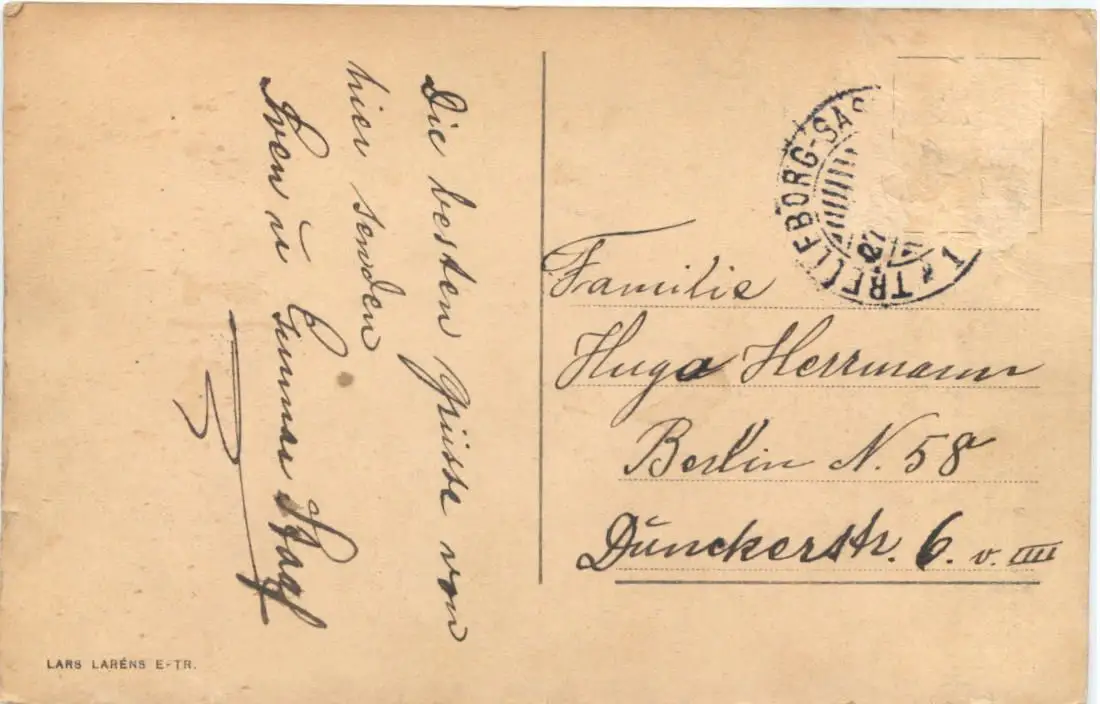 Die besten Grüsse von
hier senden
Sven u
TRELLEBORG-SAS
1
27
Familie
Hugo Herrmann
Berlin N. 58
Dunckerstr. 6. v. IIII
LARS LARÉNS E-TR.